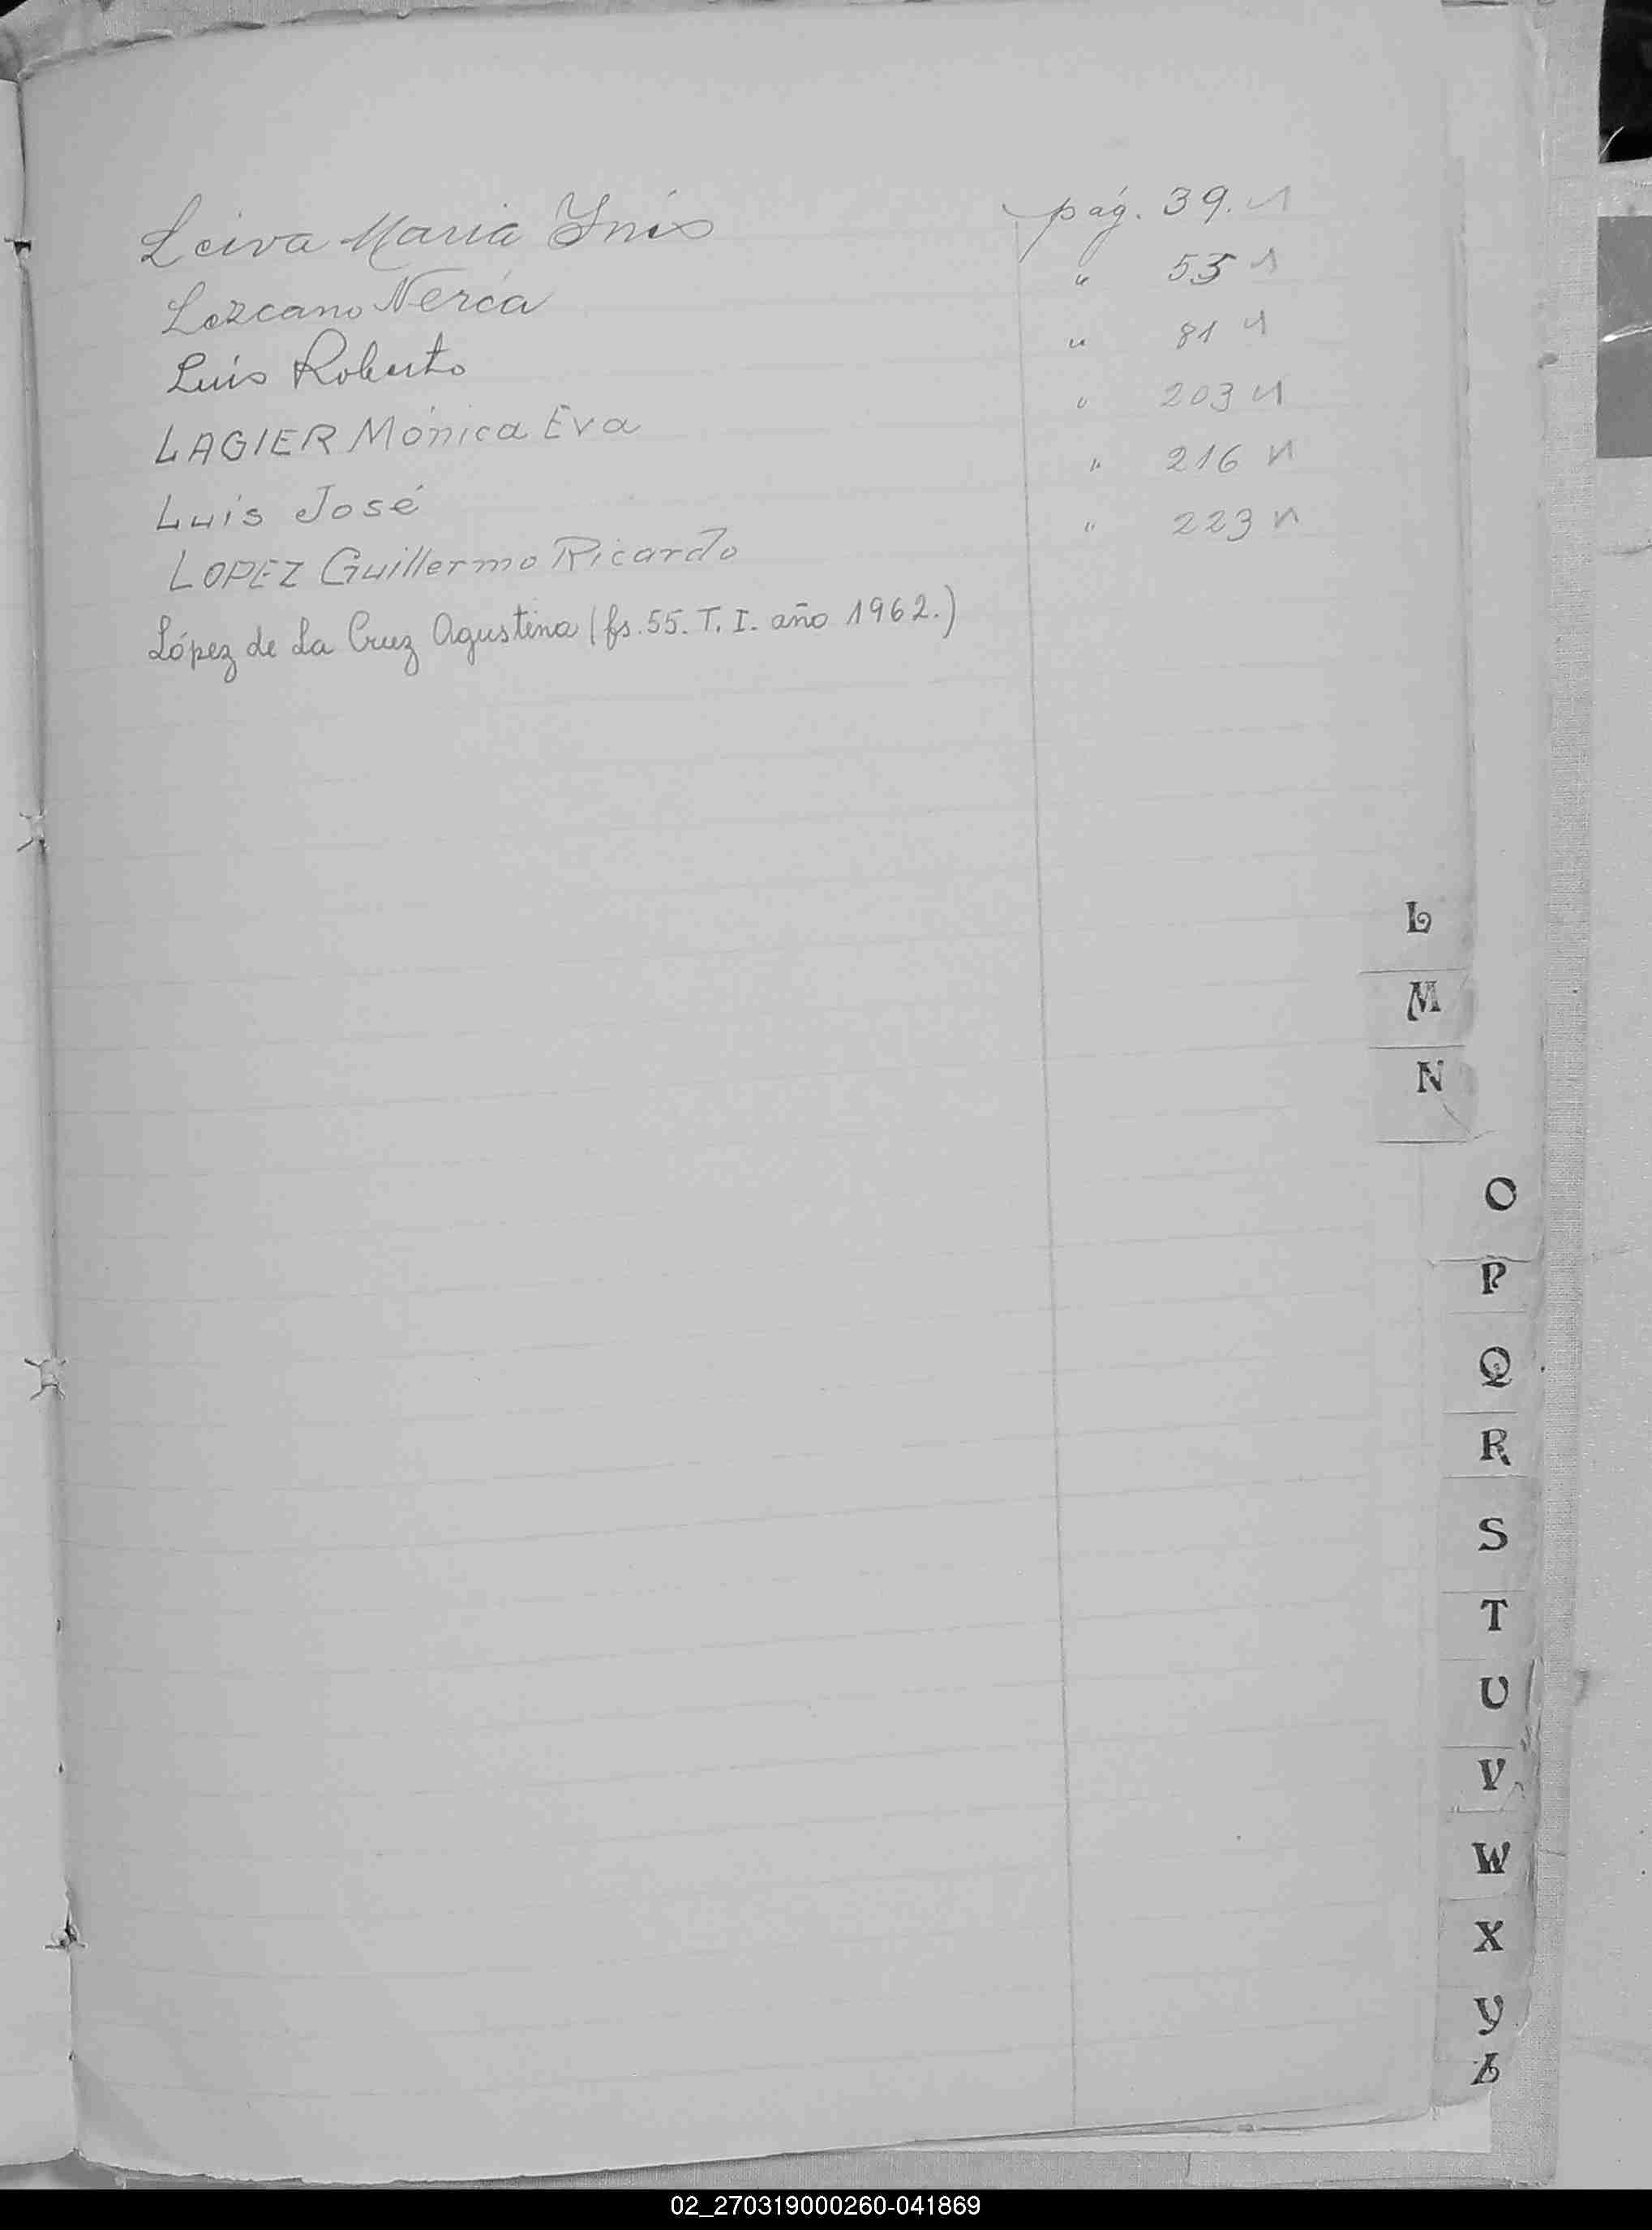 Leiva Maria Ynés pág. 39. N
Lezcano Nerea " 53 N
Luis Roberto " 81 N
LAGIER Mónica Eva " 203 N
Luis José " 216 N
LOPEZ Guillermo Ricardo " 223 N
López de La Cruz Agustina (fs. 55. T. I. año 1962.)
L
M
N
O
P
Q
R
S
T
U
V
W
X
Y
Z
02_270319000260-041869